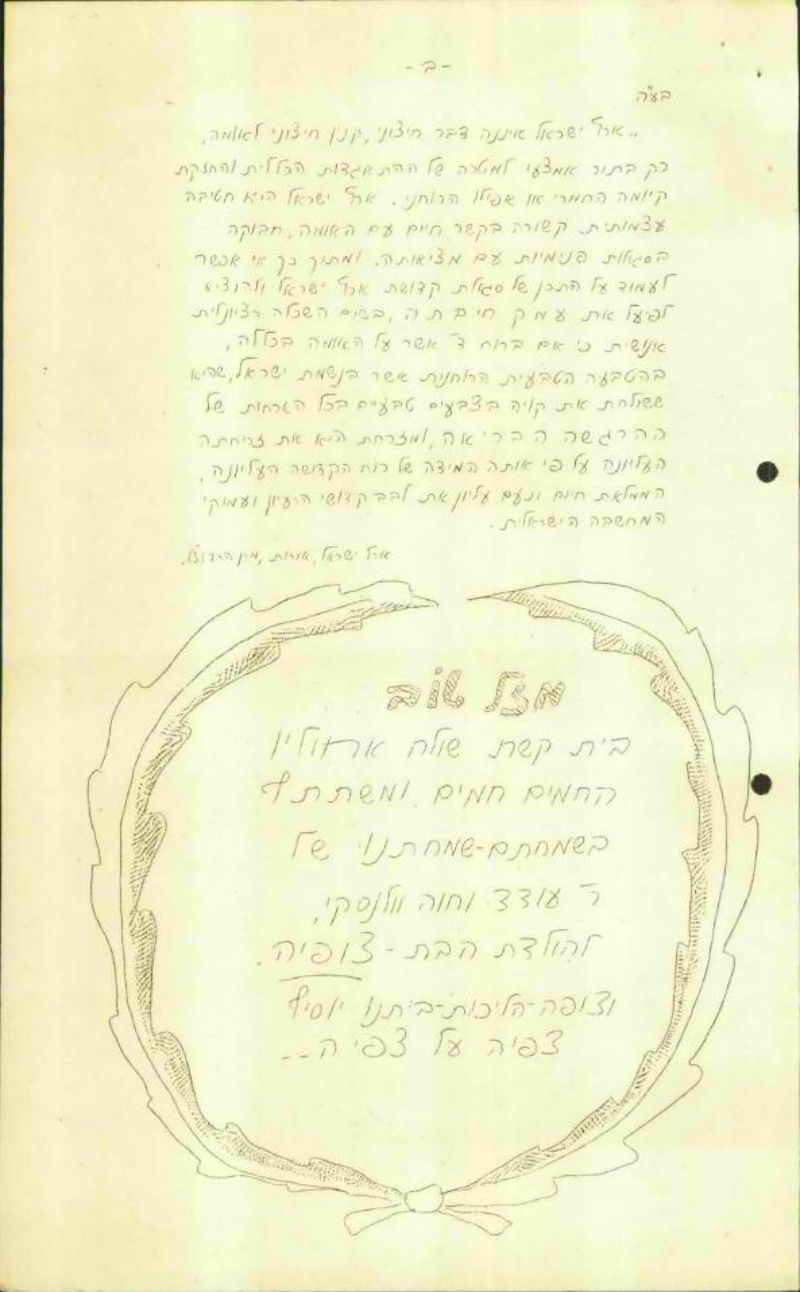 - ב -
בע"ה
„ארץ ישראל איננה דבר חיצוני, קנין חיצוני לאומה,
רק בתור אמצעי למטרה של ההתאגדות הכללית והחזקת
קיומה החמרי או אפילו הרוחני. ארץ ישראל היא חטיבה
עצמותית קשורה בקשר חיים עם האומה, חבוקה
בסגולות פנימיות עם מציאותה. ומתוך כך אי אפשר
לעמוד על התכן של סגולת קדושת ארץ ישראל ולהוציא
לפיעל את עמק חיבתה, בשום השכלה רציונלית
אנושית כי אם ברוח ד' אשר על האומה בכללה,
בהטבעה הטבעית הרוחנית אשר בנשמת ישראל, שהיא
ששולחת את קויה בצבעים טבעיים בכל הארחות של
ההרגשה הבריאה, ומזרחת היא את זריחתה
העליונה על פי אותה המידה של רוח הקדושה העליונה,
הממלאת חיים ונעם עליון את לבב קדושי הרעיון ועמוקי
המחשבה הישראלית.
ארץ ישראל, אורות, מרן הרב
מזל טוב
בית קשת שולח
החמים חמים ומשתתף
בשמחתם-שמחתנו של
ר' עודד וחוה וולנסקי,
להולדת הבת - צופיה.
וצופה-הליכות-ביתנו יוסיף
צפיה על צפיה...